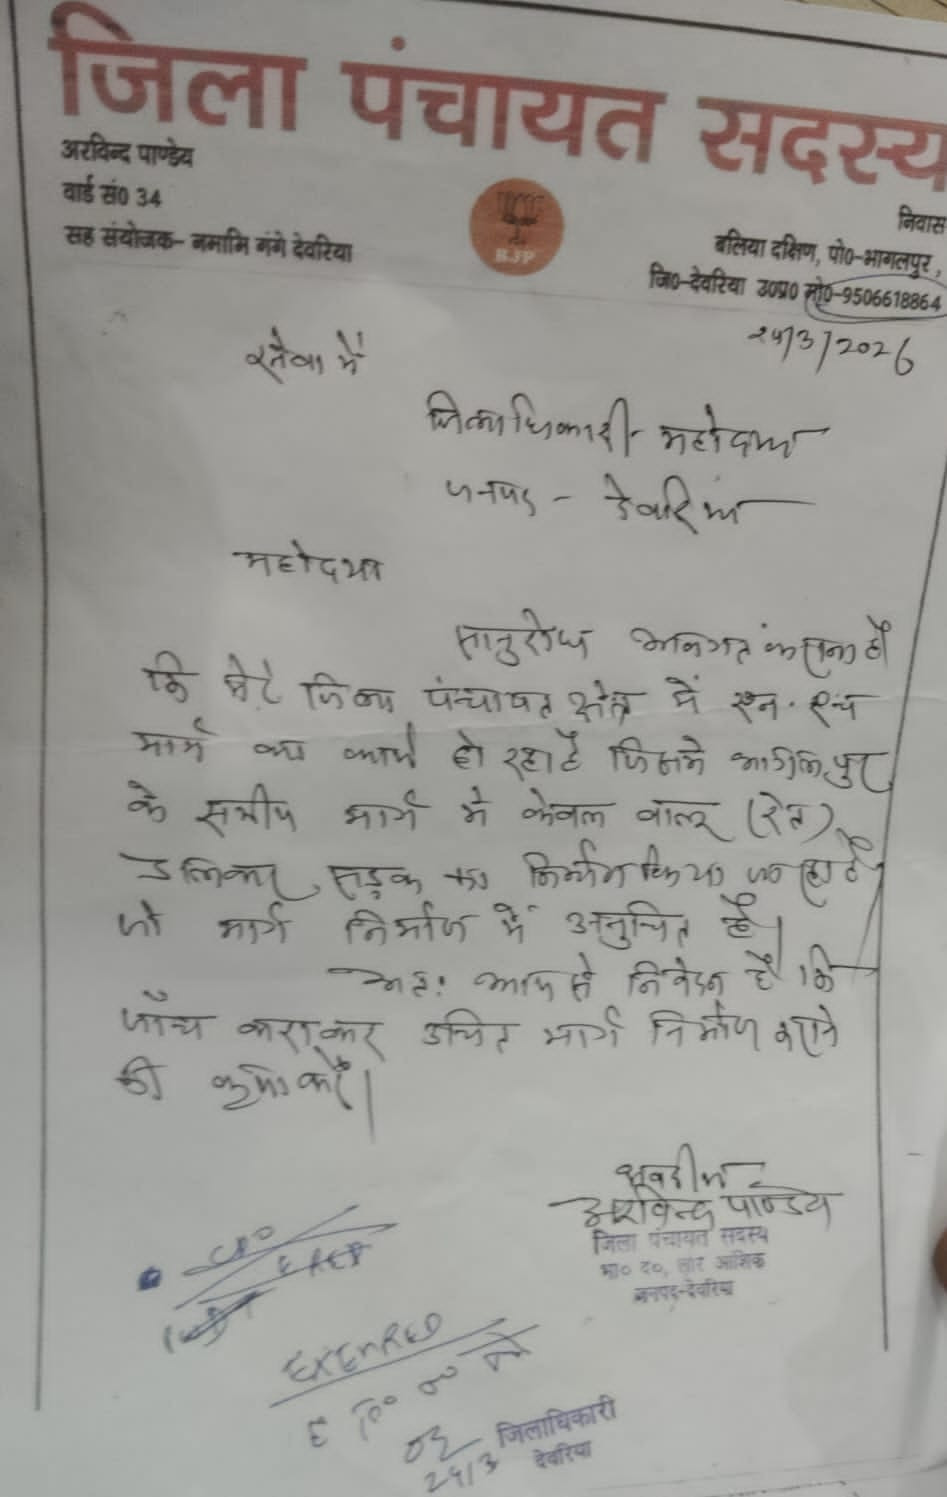 जिला पंचायत सदस्य
अरविन्द पाण्डेय
वार्ड सं0 34
सह संयोजक- नमामि गंगे देवरिया
BJP
निवास
बलिया दक्षिण, पो0-भागलपुर,
जि0-देवरिया उ0प्र0 मो0-9506618864
24/3/2026
सेवा में
जिलाधिकारी महोदया
जनपद - देवरिया
महोदया
सानुरोध अवगत कराना है
कि मेरे जिला पंचायत क्षेत्र में एन.एच
मार्ग का कार्य हो रहा है जिसमे भागलपुर
के समीप मार्ग मे केवल बालू (रेत)
डालकर सड़क का निर्माण किया जा रहा है
जो मार्ग निर्माण में अनुचित है।
अतः आप से निवेदन है कि
जाँच कराकर उचित मार्ग निर्माण कराने
की कृपा करें।
भवदीय
अरविन्द पाण्डेय
जिला पंचायत सदस्य
भा० द०, लार आंशिक
जनपद-देवरिया
24/3
जिलाधिकारी
देवरिया